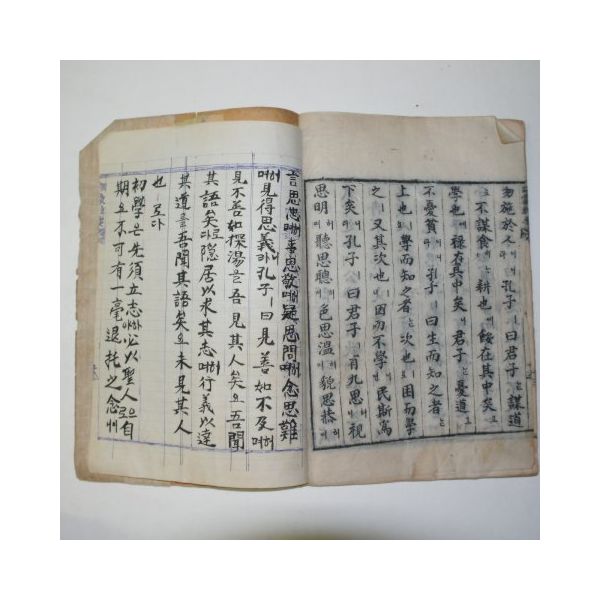 勿施於人라孔子ㅣ曰君子는謀道
ㅣ오不謀食는耕也에餒在其中矣오
學也에祿在其中矣니君子는憂道오
不憂貧이니라孔子ㅣ曰生而知之者는
上也오學而知之者는次也오困而學
之ㅣ又其次也니困而不學이면民斯爲
下矣라孔子ㅣ曰君子ㅣ有九思니視
思明며聽思聰며色思溫며貌思恭며
言思忠며事思敬며疑思問며忿思難
며見得思義라孔子ㅣ曰見善如不及며
見不善如探湯을吾見其人矣오吾聞
其語矣다隱居以求其志며行義以達
其道를吾聞其語矣오未見其人
也로다
初學은先須立志必以聖人으로自
期오不可有一毫退托之念이니